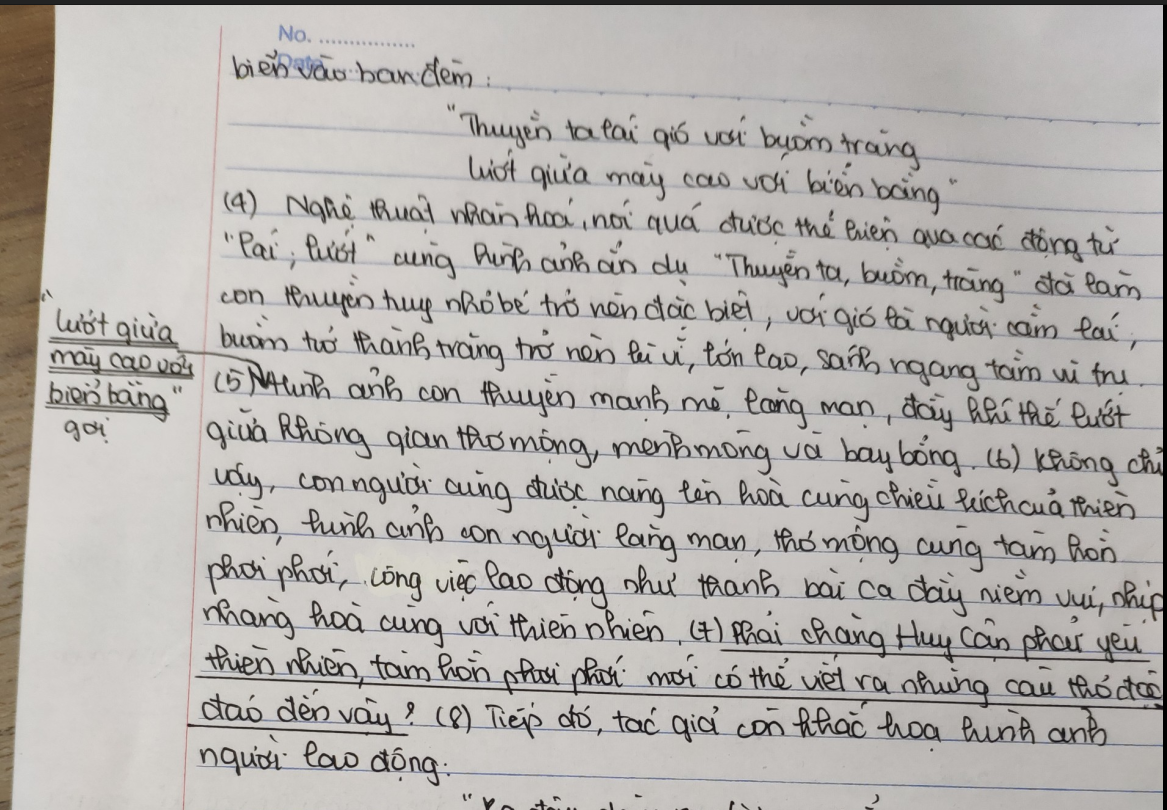 No. ................
Date
biển vào ban đêm :
"Thuyền ta lái gió với buồm trăng
lướt giữa mây cao với biển bằng"
(4) Nghệ thuật nhân hoá, nói quá được thể hiện qua các động từ
"lái, lướt" cùng hình ảnh ẩn dụ "Thuyền ta, buồm, trăng" đã làm
con thuyền tuy nhỏ bé trở nên đặc biệt, với gió là người cầm lái,
buồm từ thành trăng trở nên kì vĩ, lớn lao, sánh ngang tầm vũ trụ.
"lướt giữa
mây cao với
biển bằng"
gợi
(5) Hình ảnh con thuyền mạnh mẽ, lãng mạn, đầy khí thế lướt
giữa không gian thơ mộng, mênh mông và bay bổng. (6) Không chỉ
vậy, con người cũng được nâng lên hoà cùng chiều kích của thiên
nhiên, hình ảnh con người lãng mạn, thơ mộng cùng tâm hồn
phơi phới, công việc lao động như thành bài ca đầy niềm vui, nhịp
nhàng hoà cùng với thiên nhiên. (7) Phải chăng Huy Cận phải yêu
thiên nhiên, tâm hồn phơi phới mới có thể viết ra những câu thơ độc
đáo đến vậy? (8) Tiếp đó, tác giả còn khắc hoạ hình ảnh
người lao động: